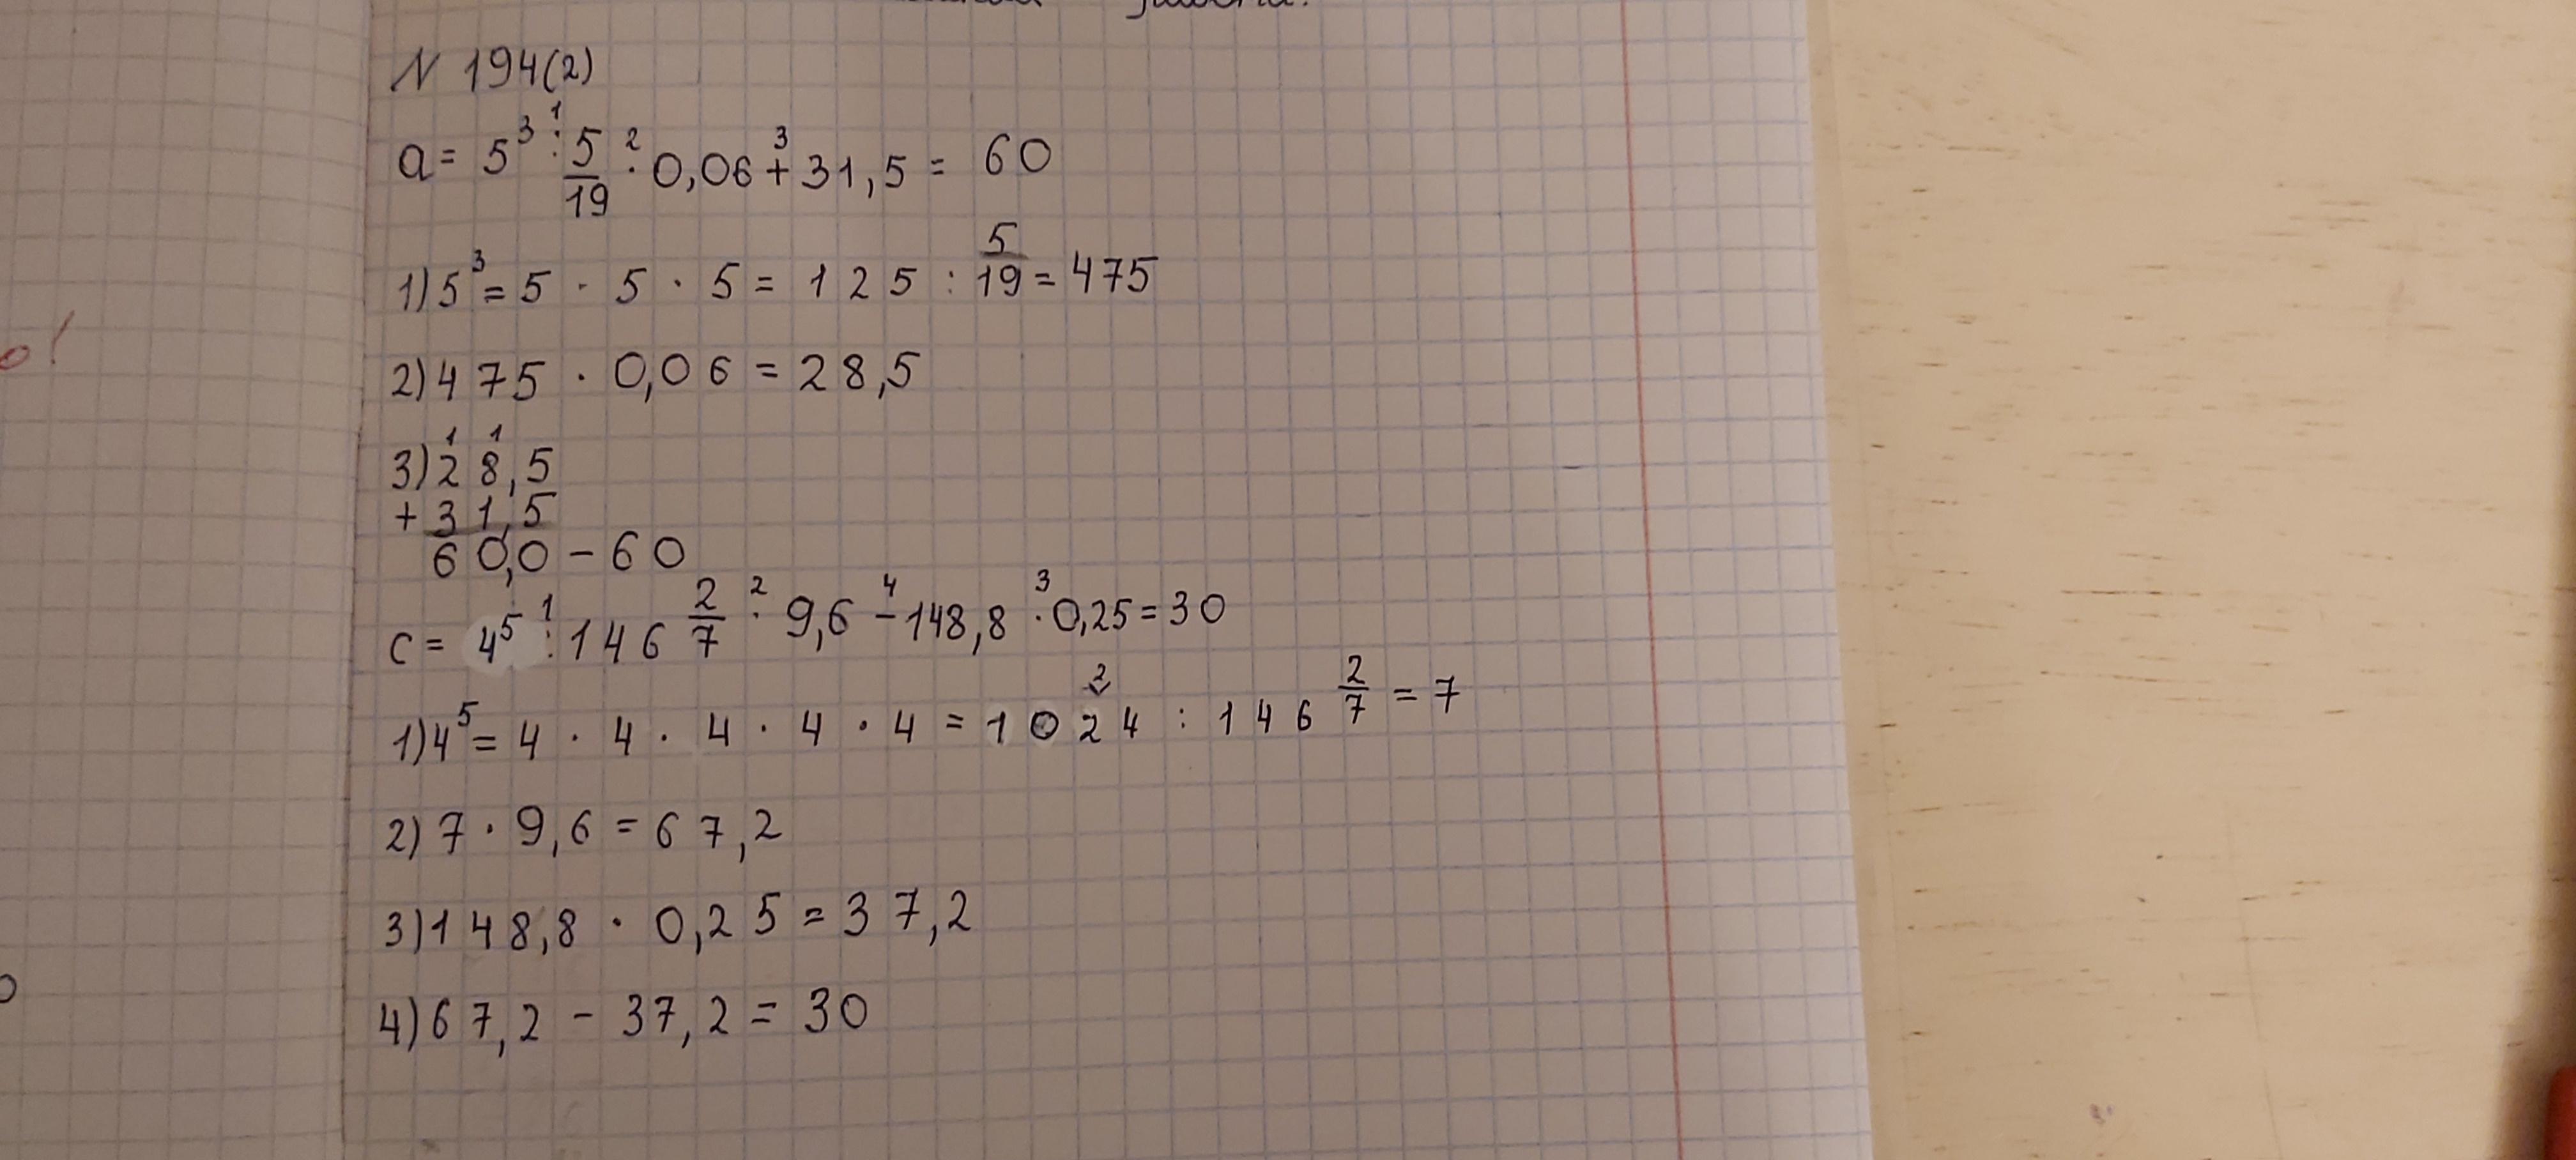 N 194(2)
a = 5³ : 5/19 · 0,06 + 31,5 = 60
1) 5³ = 5 · 5 · 5 = 125 : 5/19 = 475
2) 475 · 0,06 = 28,5
3) 28,5
+ 31,5
60,0 – 60
c = 4⁵ : 146 2/7 · 9,6 – 148,8 · 0,25 = 30
1) 4⁵ = 4 · 4 · 4 · 4 · 4 = 1024 : 146 2/7 = 7
2) 7 · 9,6 = 67,2
3) 148,8 · 0,25 = 37,2
4) 67,2 – 37,2 = 30